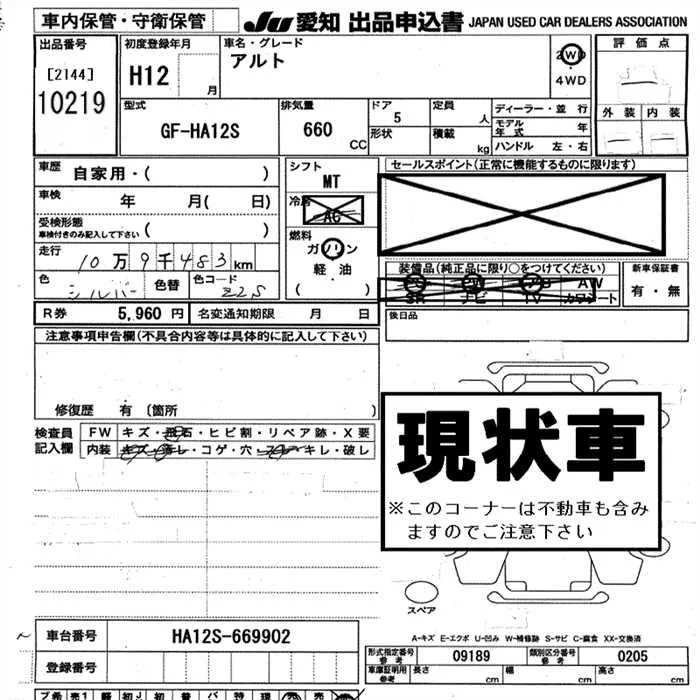 車内保管・守衛保管
JU 愛知 出品申込書 JAPAN USED CAR DEALERS ASSOCIATION
出品番号 初度登録年月 車名・グレード 評価点
[2144] H12 月 アルト 2WD
10219 4WD
型式 排気量 ドア 定員 ディーラー・並 行 外装 内装
GF-HA12S 660 CC 5 人 モデル年式 年
形状 積載 kg ハンドル 左・右
車歴 自家用・( ) シフト セールスポイント(正常に機能するものに限ります)
MT
車検 年 月( 日) 冷房
AC
受検形態
車検付きのみ記入して下さい ( ) 燃料
ガソリン
走行 10万9千483km 軽・油 装備品(純正品に限り○をつけてください) 新車保証書
色 シルバー 色替 色コード Z2S ( ) PS PW AB AW 有・無
SR ナビ TV カワシート
R券 5,960 円 名変通知期限 月 日 後日品
注意事項申告欄(不具合内容等は具体的に記入して下さい)
修復歴 有 〔箇所 〕
検査員 FW キズ・飛石・ヒビ割・リペア跡・X要
記入欄 内装 キズ・・コゲ・穴・キレ・破レ
現状車
※このコーナーは不動車も含み
ますのでご注意下さい
スペア
A-キズ E-エクボ U-凹み W-補修跡 S-サビ C-腐食 XX-交換済
車台番号 HA12S-669902
形式指定番号 参考 09189 類別区分番号 参考 0205
登録番号 車庫証明用 参考 長さ cm 幅 cm 高さ cm